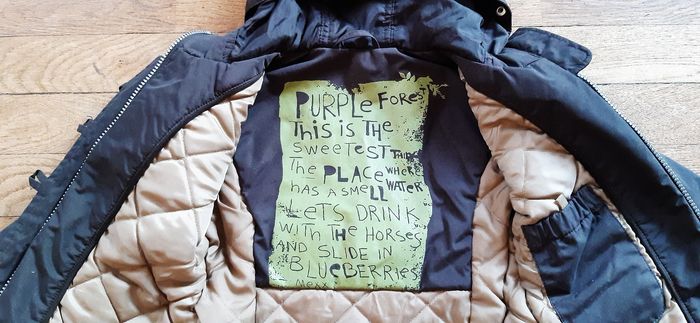 PURPLE FOREST
THIS IS THE
SWEETEST THING
THE PLACE WHERE
HAS A SMELL WATER
LET'S DRINK
WITH THE HORSES
AND SLIDE IN
BLUEBERRIES
MEXX